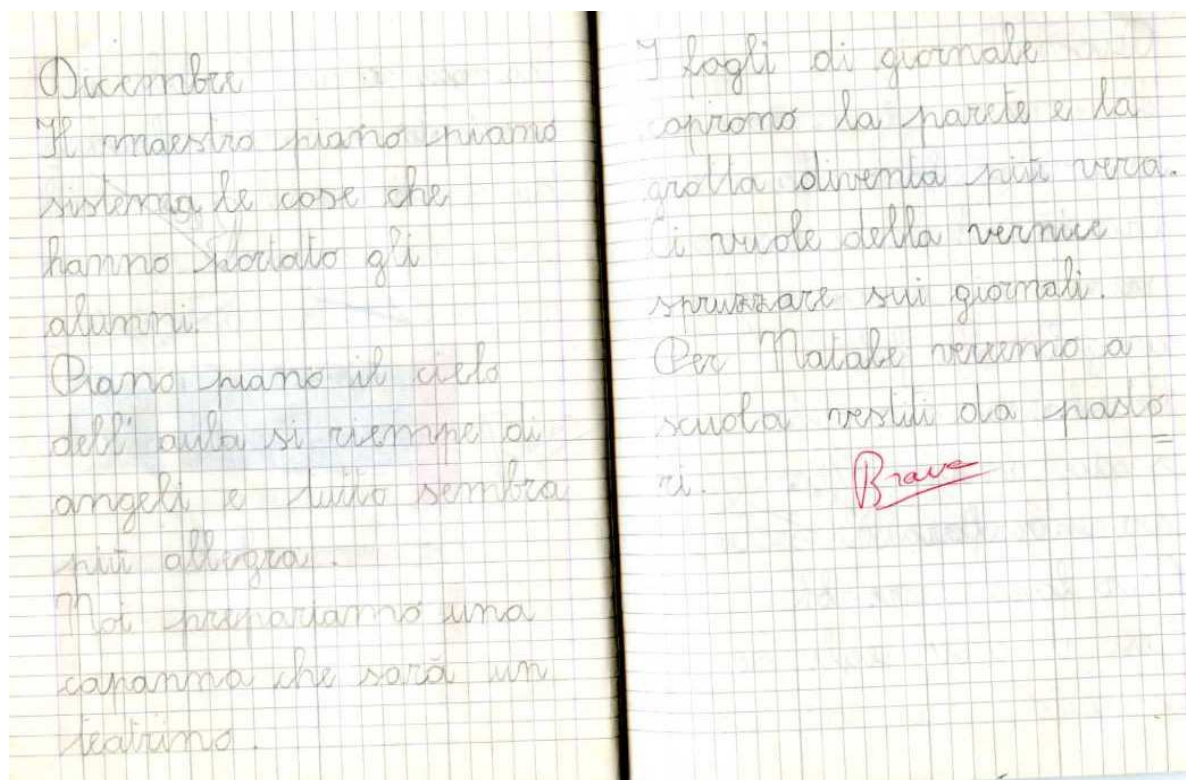 Dicembre
Il maestro piano piano
sistema le cose che
hanno portato gli
alunni.
Piano piano il cielo
dell'aula si riempe di
angeli. Tutto sembra
più allegra.
Noi prepariamo una
capanna che sarà un
teatrino.
I fogli di giornale
coprono la parete e la
grotta diventa più vera.
Ci vuole della vernice
spruzzare sui giornali.
Per Natale verremo a
scuola vestiti da pasto
ri. Brava